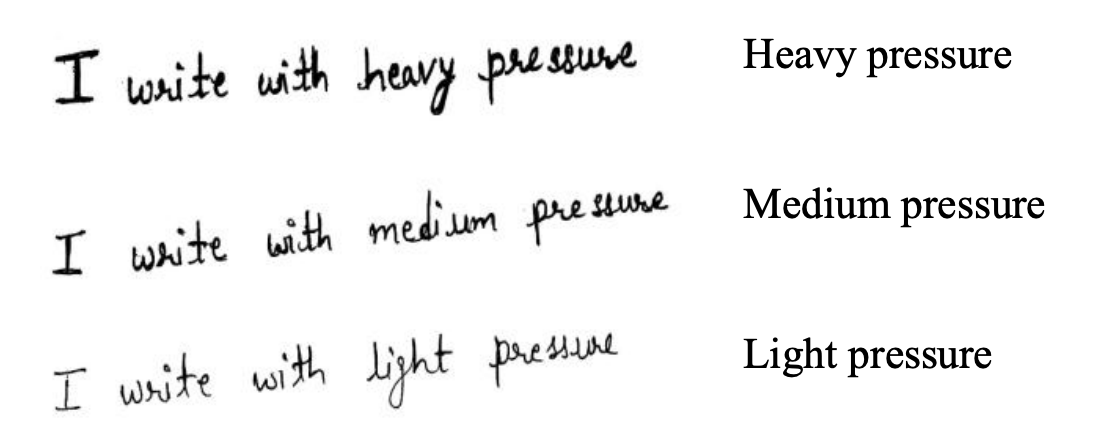 I write with heavy pressure Heavy pressure
I write with medium pressure Medium pressure
I write with light pressure Light pressure